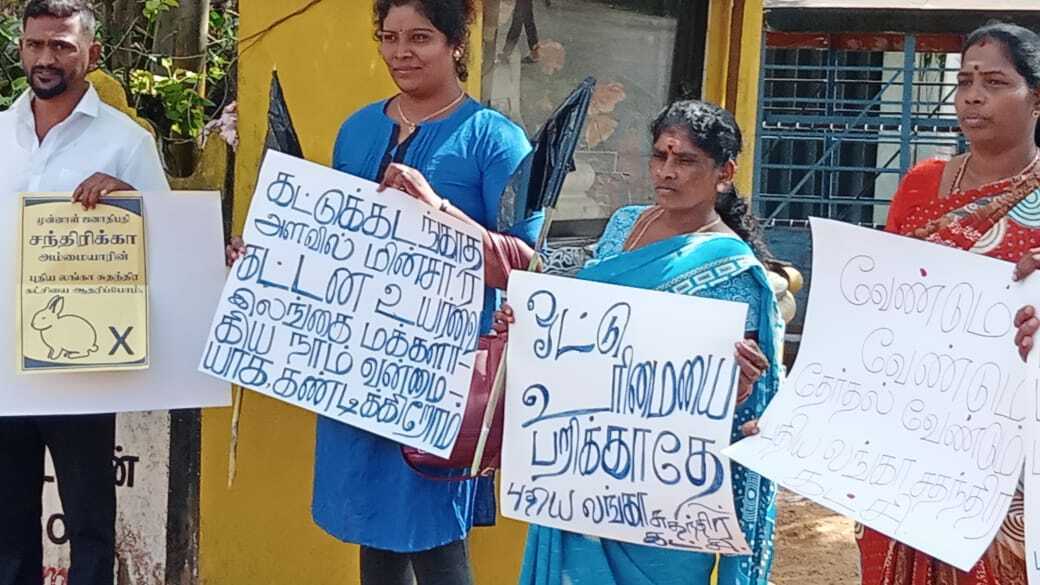 முன்னாள் ஜனாதிபதி
சந்திரிக்கா
அம்மையாரின்
புதிய லங்கா சுதந்திர
கட்சியை ஆதரிப்போம்.
X
கட்டுக்கடங்காத
அளவில் மின்சார
கட்டண உயர்வை
இலங்கை மக்களா-
கிய நாம் வன்மை-
யாக கண்டிக்கிறோம்
ஓட்டு
ரிமையை
உ
பறிக்காதே
புதிய லங்கா சுதந்திர
கட்சி
வேண்டும்
வேண்டும்
தேர்தல் வேண்டும்
புதிய லங்கா சுதந்திர
கட்சி